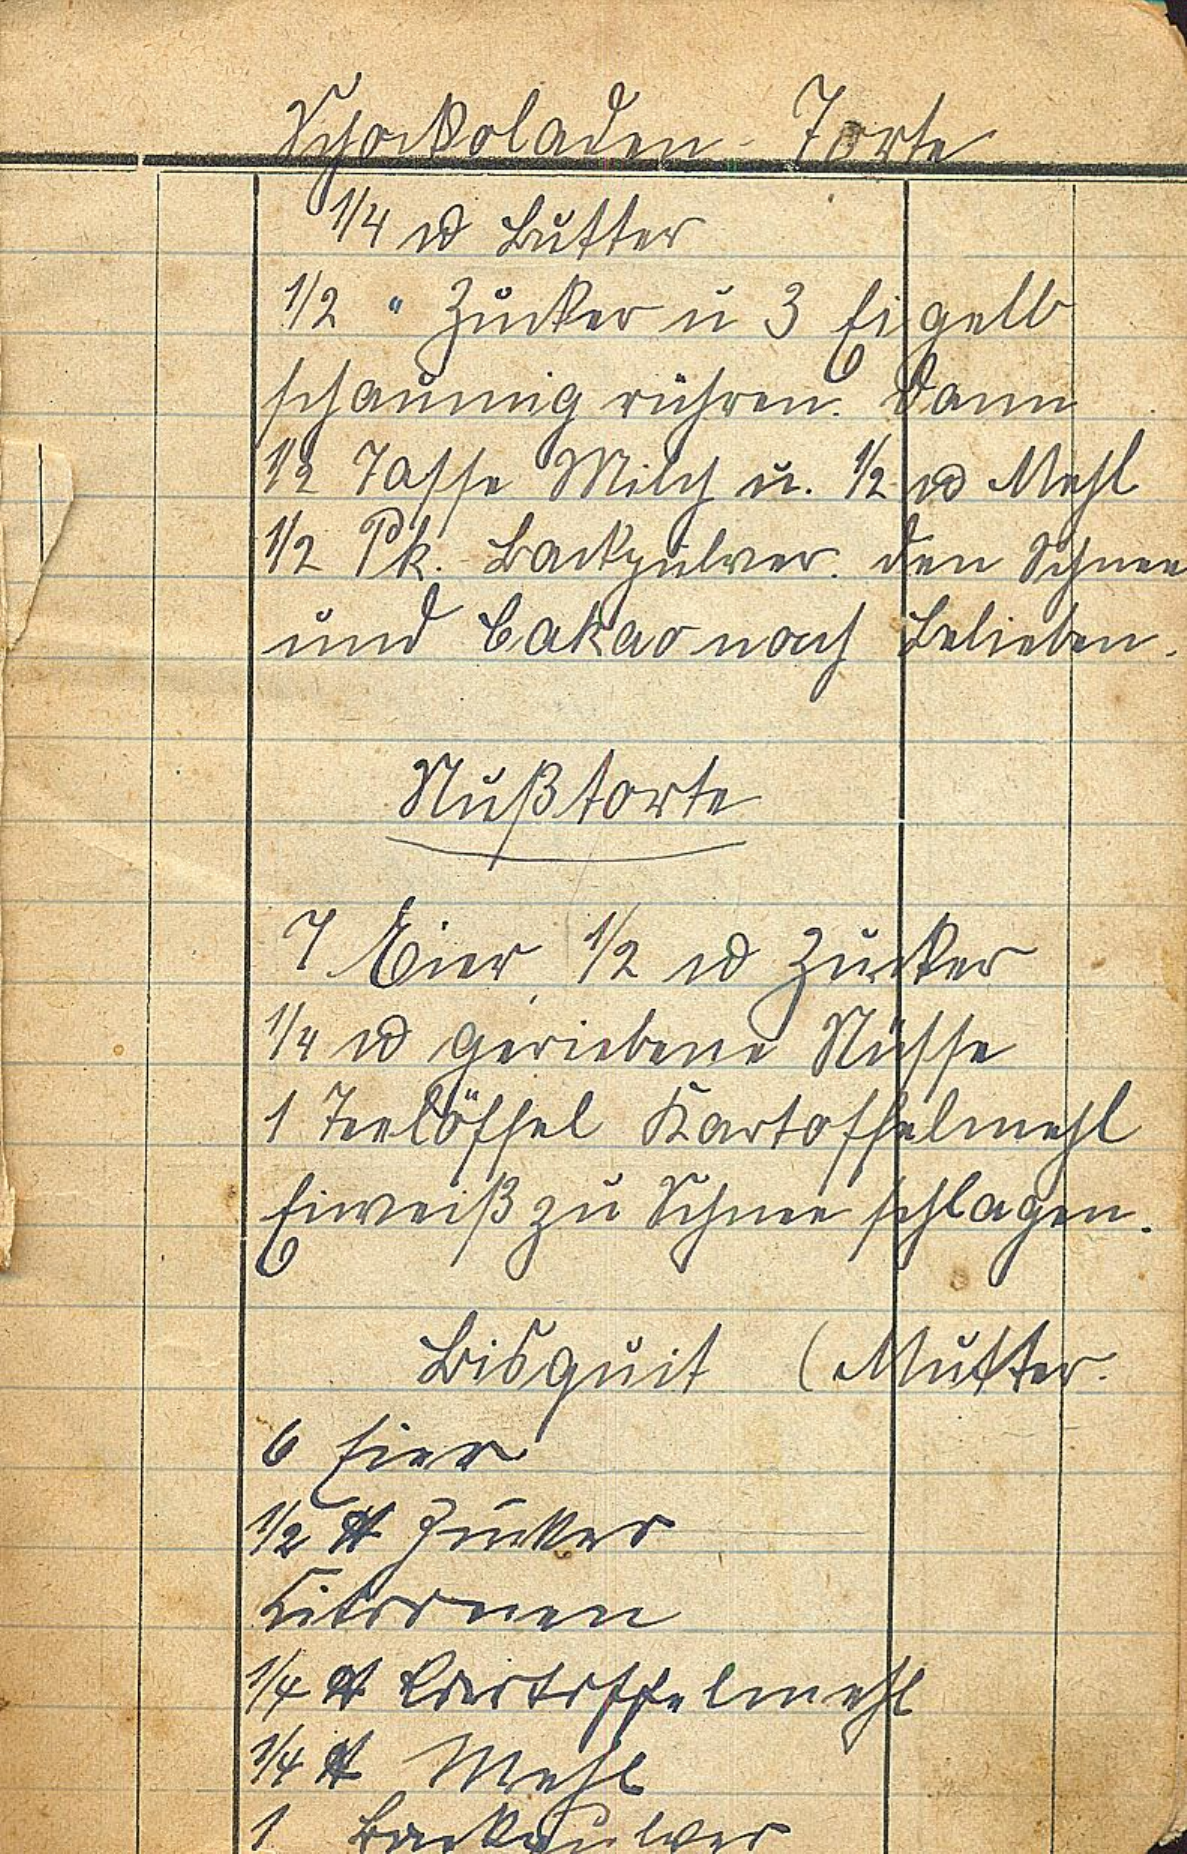 Schockoladen-Torte
1/4 ℔ Butter
1/2 " Zucker u 3 Eigelb
schaumig rühren. Dann
1/2 Tasse Milch u. 1/2 ℔ Mehl
1/2 Pk. Backpulver. den Schnee
und Cakao nach Belieben.
Nußtorte
7 Eier, 1/2 ℔ Zucker
1/4 ℔ geriebene Nüsse
1 Teelöffel Kartoffelmehl
Eiweiß zu Schnee schlagen.
Bisquit (Mutter.
6 Eier
1/2 ℔ Zucker
Zitronen
1/4 ℔ Kartoffelmehl
1/4 ℔ Mehl
1 Backpulver